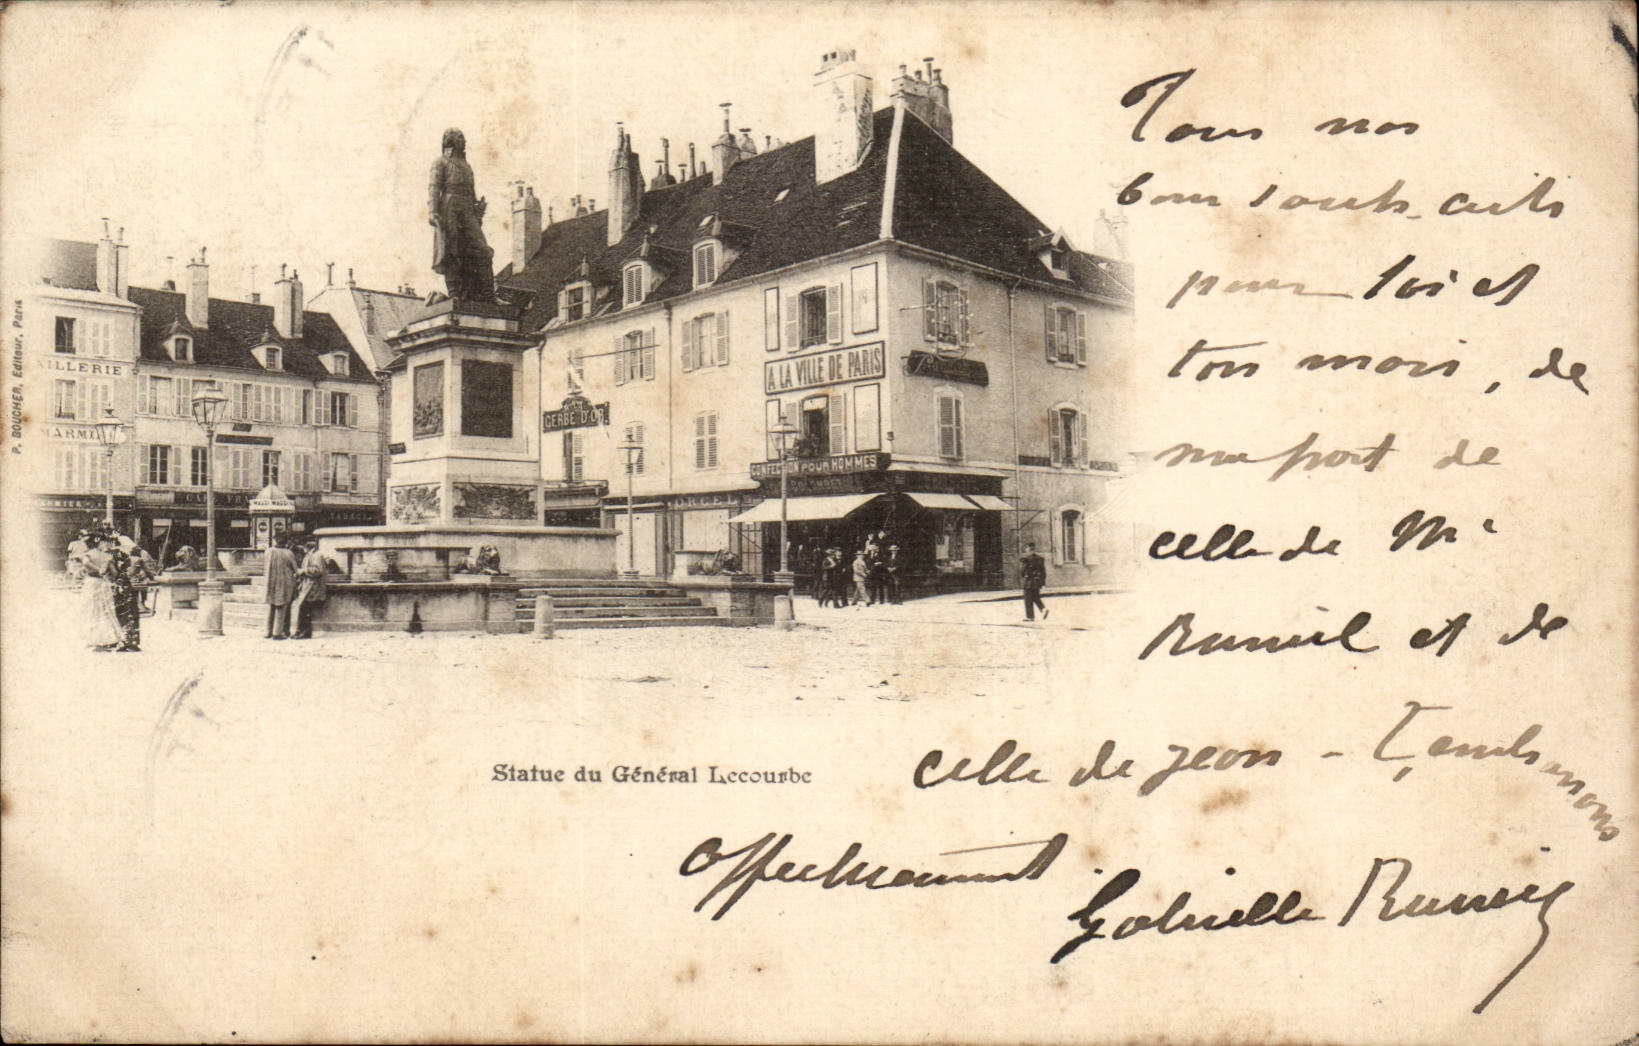 P. BOUCHER, Editeur, Paris
AILLERIE
MARMI
GERBE D'OR
A LA VILLE DE PARIS
CONFECTION POUR HOMMES
ORCEL
Statue du Général Lecourbe
Tous nos
bons souhaits
pour toi et
ton mari, de
ma part de
celle de Mr
et de
celle de Jean -
Affectueusement
Gabrielle